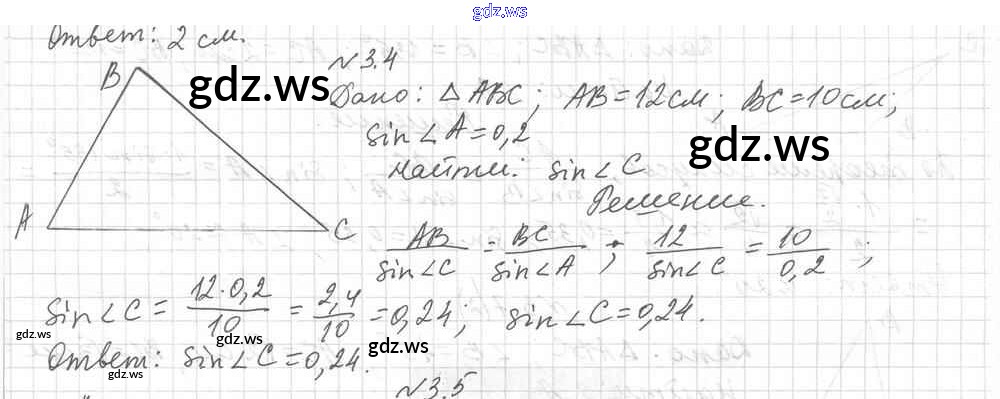 gdz.ws
Ответ: 2 см.
N3.4
B
gdz.ws
Дано: △ABC; AB=12см; BC=10см;
sin∠A=0,2
gdz.ws
Найти: sin∠C
Решение.
A
C
AB/sin∠C = BC/sin∠A; 12/sin∠C = 10/0,2;
sin∠C = 12·0,2/10 = 2,4/10 = 0,24; sin∠C=0,24.
gdz.ws
gdz.ws
gdz.ws
Ответ: sin∠C=0,24.
gdz.ws
N3.5
gdz.ws